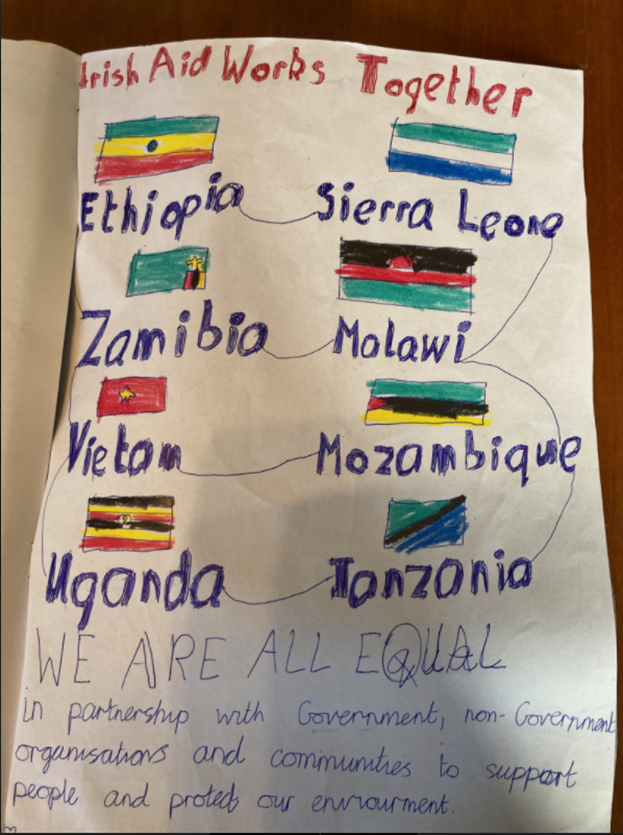 Irish Aid Works Together
Ethiopia Sierra Leone
Zamibia Malawi
Vietam Mozambique
Uganda Tanzania
WE ARE ALL EQUAL
in partnership with Government, non-Government
organisations and communities to support
people and protect our envirourment.